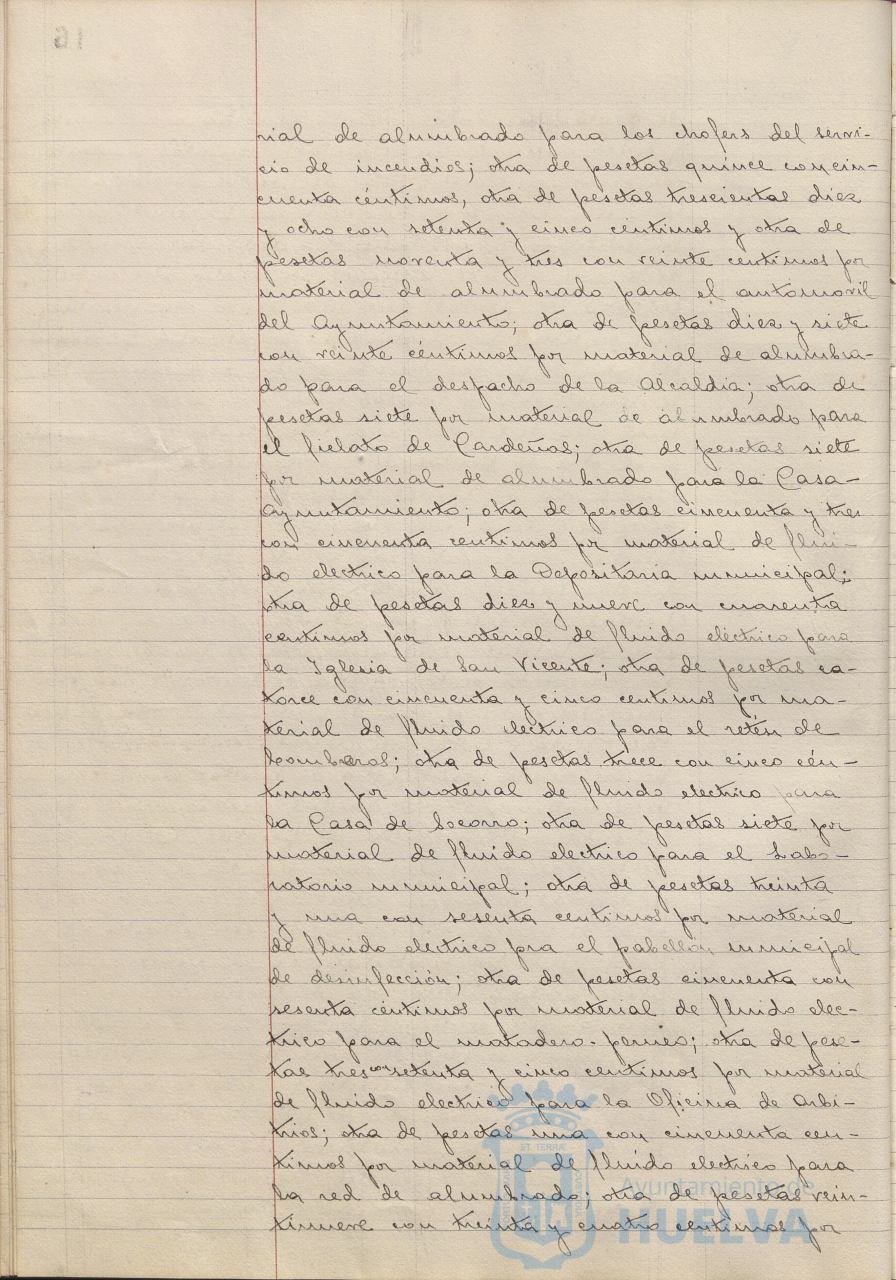 rial de alumbrado para los chofers del servi-
cio de incendios; otra de pesetas quince con cin-
cuenta céntimos, otra de pesetas trescientas diez
y ocho con setenta y cinco céntimos y otra de
pesetas noventa y tres con veinte centimos por
material de alumbrado para el automovil
del Ayuntamiento; otra de pesetas diez y siete
con veinte céntimos por material de alumbra-
do para el despacho de la Alcaldia; otra de
pesetas siete por material de alumbrado para
el fielato de Cardeñas; otra de pesetas siete
por material de alumbrado para la Casa-
Ayuntamiento; otra de pesetas cincuenta y tres
con cincuenta centimos por material de flui-
do electrico para la Depositaria municipal;
otra de pesetas diez y nueve con cuarenta
centimos por material de fluido eléctrico para
la Iglesia de San Vicente; otra de pesetas ca-
torce con cincuenta y cinco centimos por ma-
terial de fluido electrico para el retén de
bomberos; otra de pesetas trece con cinco cén-
timos por material de fluido electrico para
la Casa de Socorro; otra de pesetas siete por
material de fluido electrico para el Labo-
ratorio municipal; otra de pesetas treinta
y una con sesenta centimos por material
de fluido electrico pra el pabellon municipal
de desinfección; otra de pesetas cincuenta con
sesenta céntimos por material de fluido elec-
trico para el matadero-perneo; otra de pese-
tas tres con setenta y cinco centimos por material
de fluido electrico para la Oficina de Arbi-
trios; otra de pesetas una con cincuenta cen-
timos por material de fluido electrico para
la red de alumbrado; otra de pesetas vein-
tinueve con treinta y cuatro centimos por
Ayuntamiento de
HUELVA